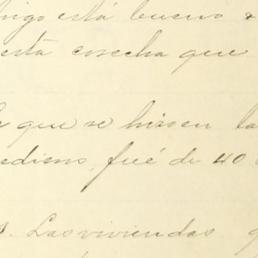 trigo está bueno &
esta cosecha que
que se hizo en la
fué de 40
Las viviendas q